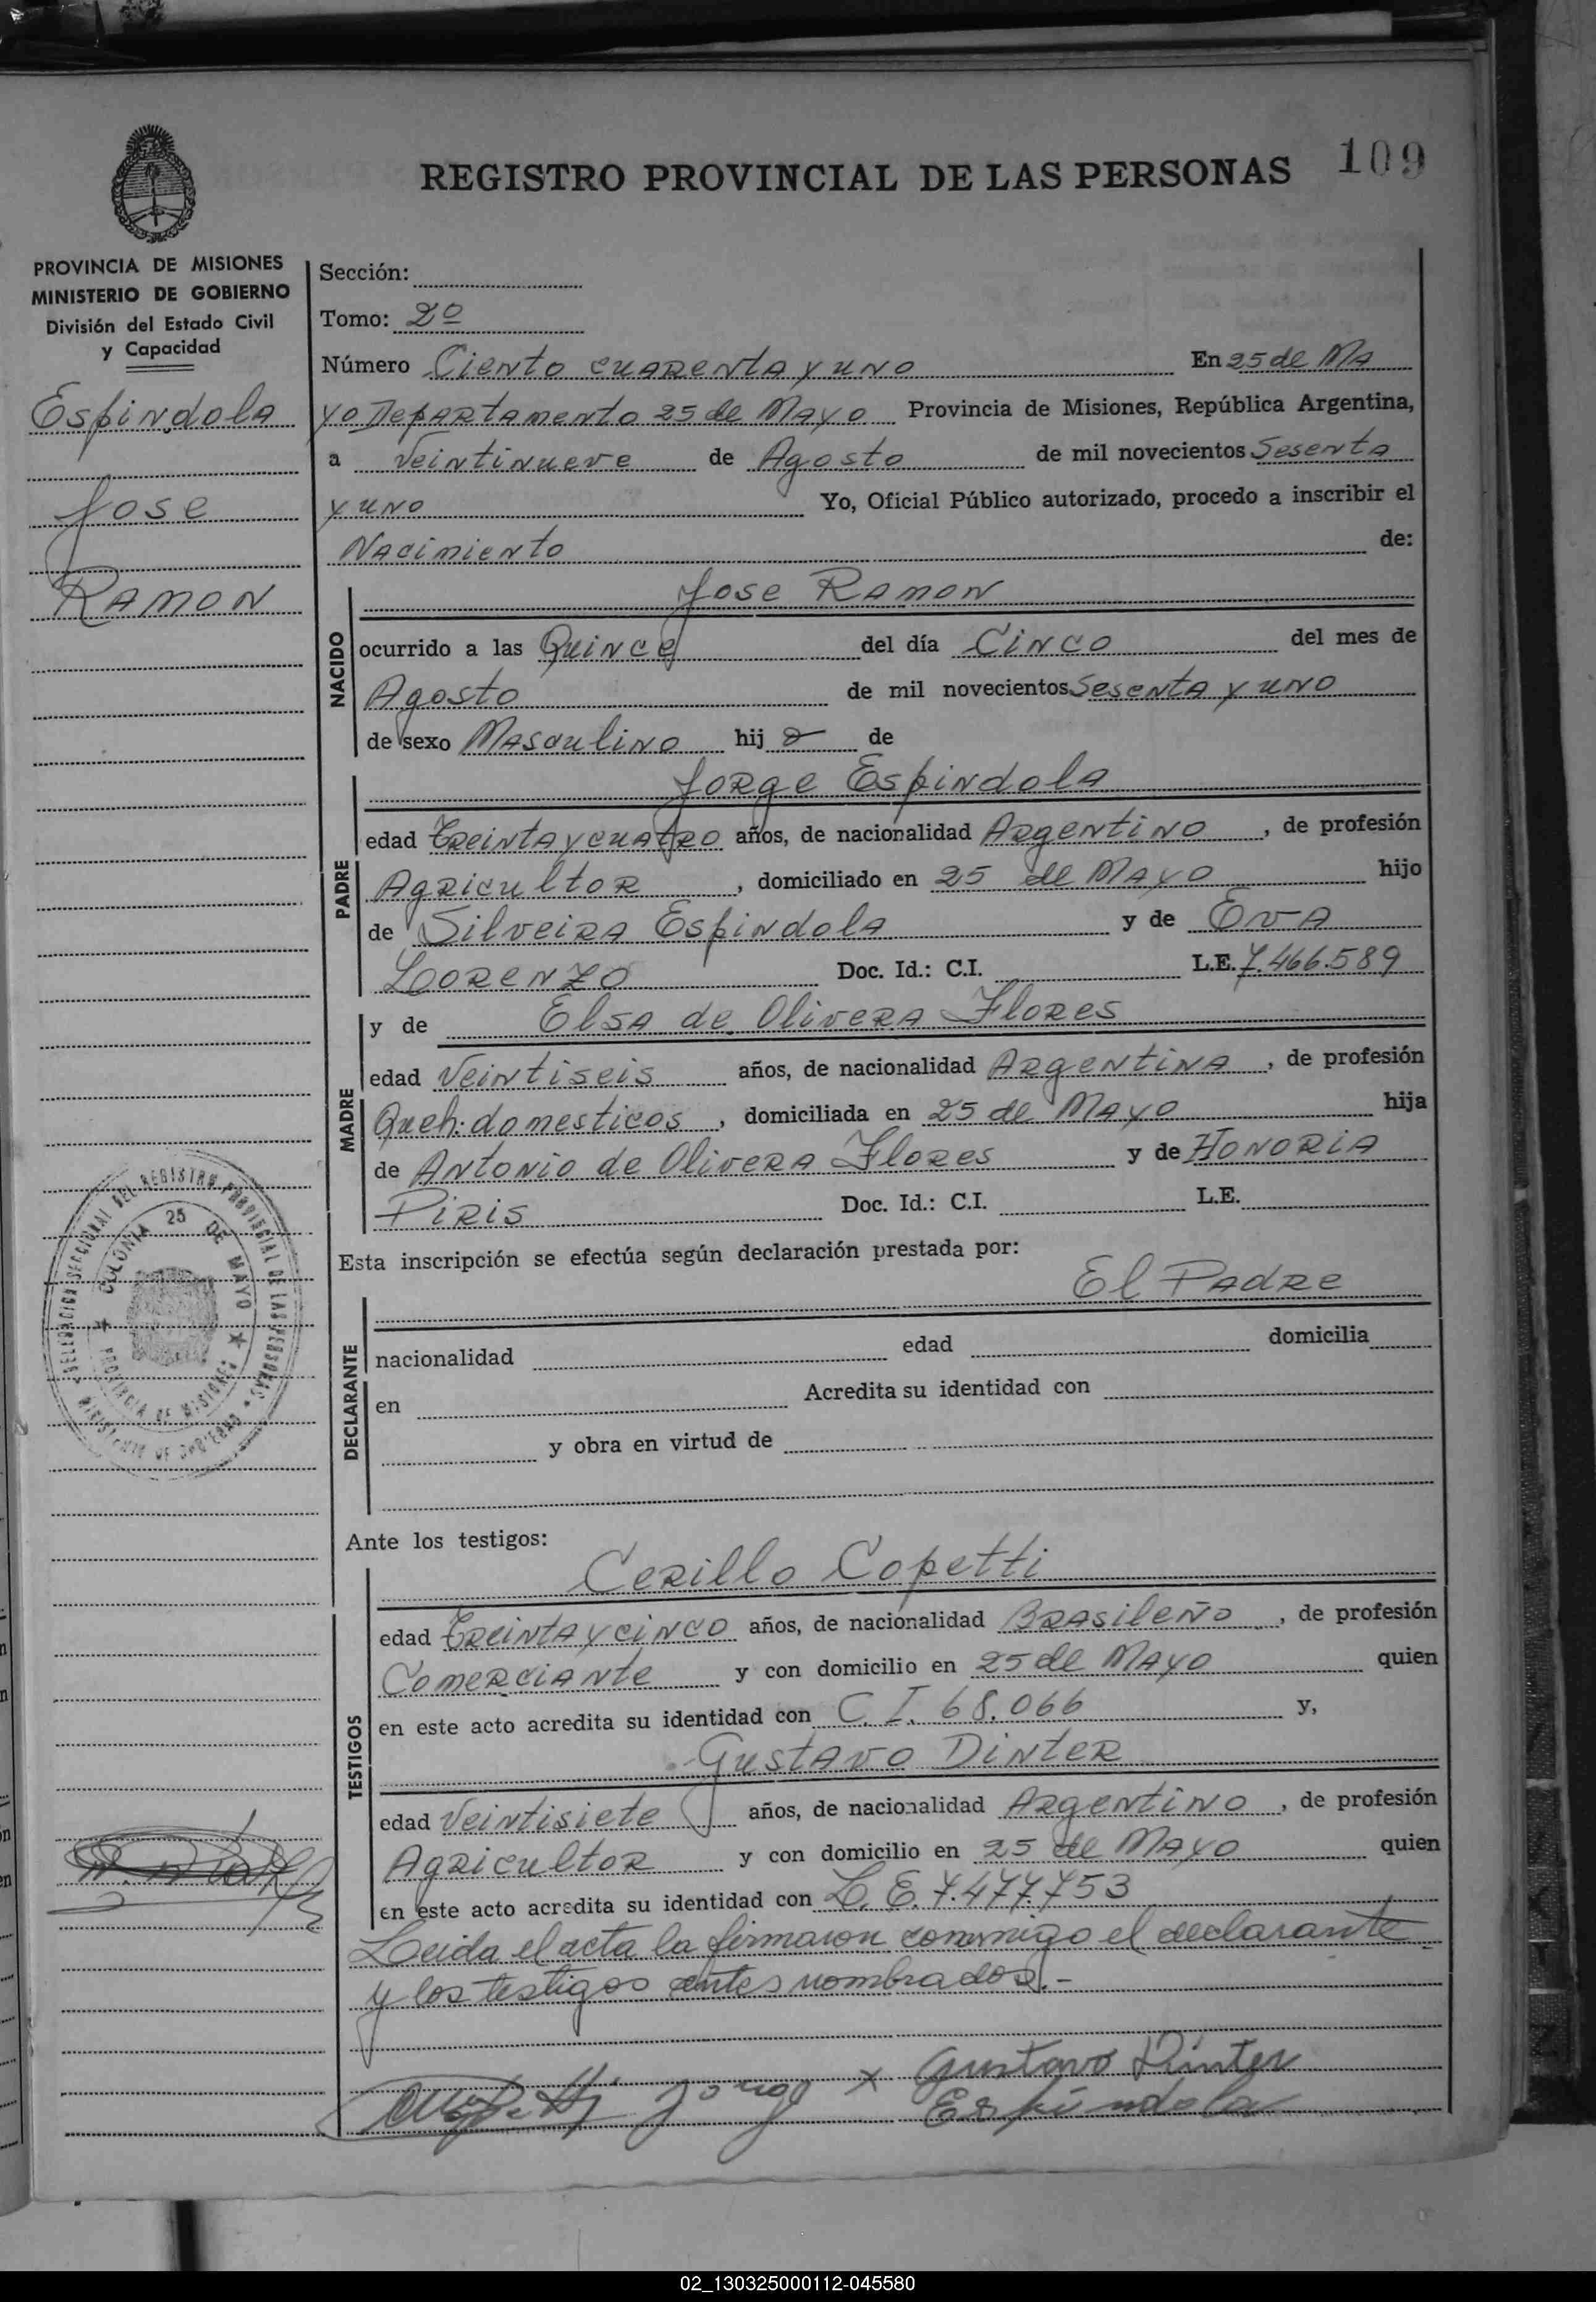 REGISTRO PROVINCIAL DE LAS PERSONAS 109
PROVINCIA DE MISIONES
MINISTERIO DE GOBIERNO
División del Estado Civil
y Capacidad
Espindola
Jose
Ramon
Sección:
Tomo: 2º
Número Ciento cuarenta y uno En 25 de Ma
yo Departamento 25 de Mayo Provincia de Misiones, República Argentina,
a Veintinueve de Agosto de mil novecientos Sesenta
y uno Yo, Oficial Público autorizado, procedo a inscribir el
Nacimiento de:
NACIDO
Jose Ramon
ocurrido a las Quince del día Cinco del mes de
Agosto de mil novecientos Sesenta y uno
de sexo Masculino hij o de
PADRE
Jorge Espindola
edad Treinta y cuatro años, de nacionalidad Argentino, de profesión
Agricultor, domiciliado en 25 de Mayo hijo
de Silveira Espindola y de Eva
Lorenzo Doc. Id.: C.I. L.E. 7.466.589
MADRE
y de Elsa de Olivera Flores
edad Veintiseis años, de nacionalidad Argentina, de profesión
Queh. domesticos, domiciliada en 25 de Mayo hija
de Antonio de Olivera Flores y de Honoria
Piris Doc. Id.: C.I. L.E.
Esta inscripción se efectúa según declaración prestada por:
DECLARANTE
El Padre
nacionalidad edad domicilia
en Acredita su identidad con
y obra en virtud de
Ante los testigos:
TESTIGOS
Cerillo Copetti
edad Treinta y cinco años, de nacionalidad Brasileño, de profesión
Comerciante y con domicilio en 25 de Mayo quien
en este acto acredita su identidad con C. I. 68.066 y,
Gustavo Dinter
edad Veintisiete años, de nacionalidad Argentino, de profesión
Agricultor y con domicilio en 25 de Mayo quien
en este acto acredita su identidad con L. E. 7.477.753
Leida el acta la firmaron conmigo el declarante
y los testigos antes nombrados.-
Gustavo Dinter
Jorge x Espindola
COLONIA 25 DE MAYO
PROVINCIA DE MISIONES
02_130325000112-045580